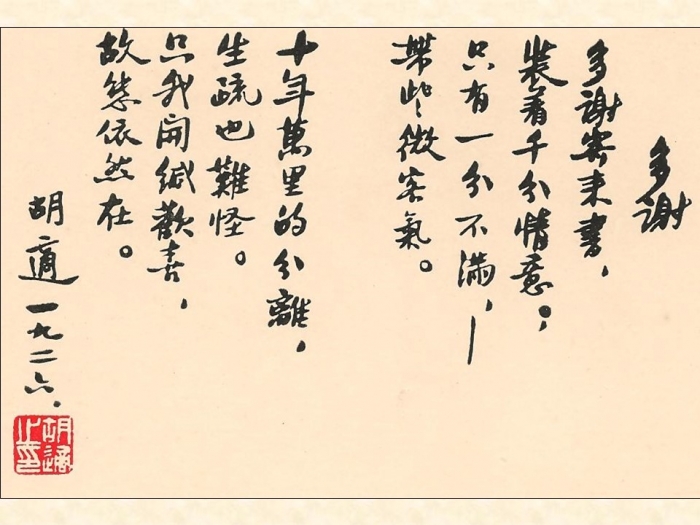 多謝
多謝寄来書，
裝着千分情意。；
只有一分不滿，—
帶些微客氣。
十年萬里的分離，
生疏也難怪。
只我開緘歡喜，
故態依然在。
胡適一九二六．
胡適之印